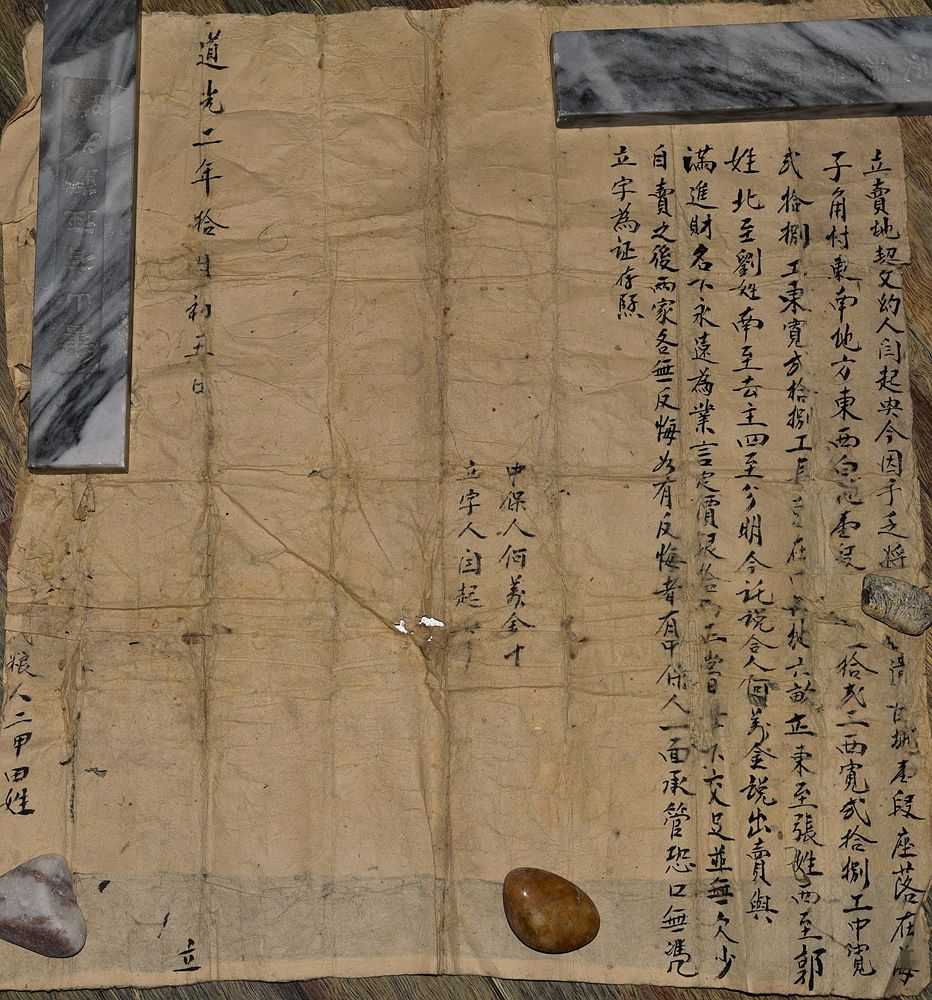 立賣地契文約人闫起央今因手乏將地壹段座落在
子角付東南地方東西白地壹段拾弍工西寬弍拾捌工中寬
弍拾捌工東寬弍拾捌工在地六畝正東至張姓西至郭
姓北至劉姓南至去主四至分明今託說合人何萬金說出賣與
滿進財名下永遠為業言定價銀拾正當下交足並無欠少
自賣之後兩家各無反悔如有反悔者有中保人一面承管恐口無憑
立字為证存照
中保人何萬金十
立字人闫起
道光二年拾月初五日立
粮人二甲田姓